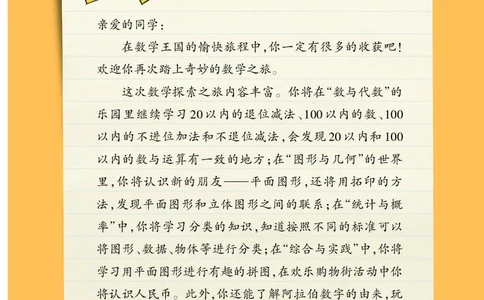 亲爱的同学:
在数学王国的愉快旅程中,你一定有很多的收获吧!
欢迎你再次踏上奇妙的数学之旅。
这次数学探索之旅内容丰富。你将在“数与代数”的
乐园里继续学习20以内的退位减法、100以内的数、100
以内的不进位加法和不退位减法,会发现20以内和100
以内的数与运算有一致的地方;在“图形与几何”的世界
里,你将认识新的朋友——平面图形,还将用拓印的方
法,发现平面图形和立体图形之间的联系;在“统计与概
率”中,你将学习分类的知识,知道按照不同的标准可以
将图形、数据、物体等进行分类;在“综合与实践”中,你将
学习用平面图形进行有趣的拼图,在欢乐购物街活动中你
将认识人民币。此外,你还能了解阿拉伯数字的由来,玩